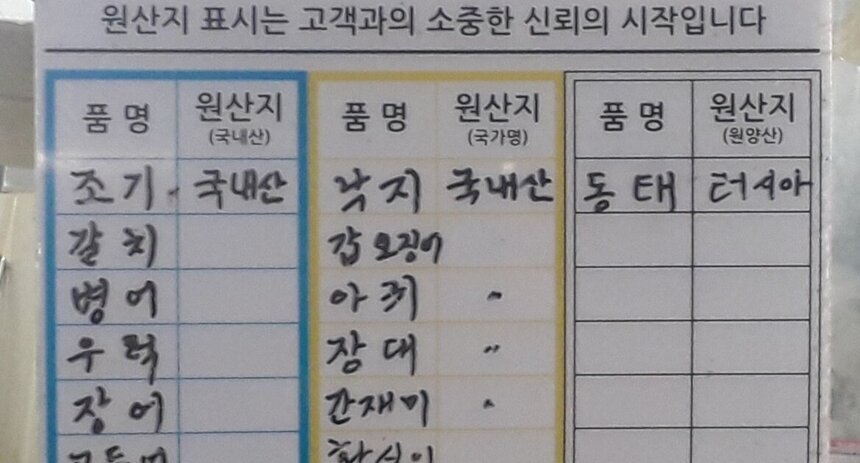 원산지 표시는 고객과의 소중한 신뢰의 시작입니다
품명 원산지 (국내산) 품명 원산지 (국가명) 품명 원산지 (원양산)
조기 국내산 낙지 국내산 동태 터시아
갈치 갑오징어
병어 아귀 〃
우럭 장대 〃
장어 간재미 〃